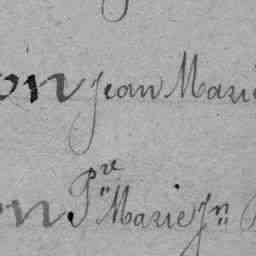 on Jean Marie
on Pre Marie Jn